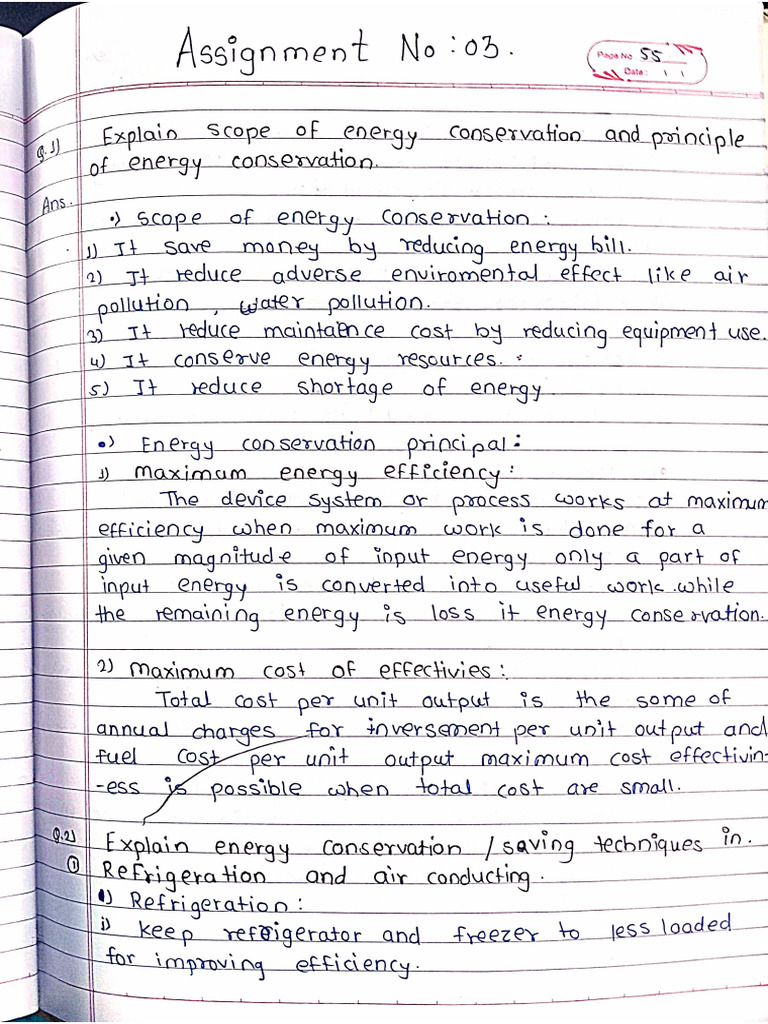 Assignment No : 03.
Page No 55
Date : / /
Q.1) Explain scope of energy conservation and principle
of energy conservation.
Ans.
•) scope of energy conservation :
1) It save money by reducing energy bill.
2) It reduce adverse enviromental effect like air
pollution , water pollution.
3) It reduce maintaence cost by reducing equipment use.
4) It conserve energy resources.
5) It reduce shortage of energy
•) Energy conservation principal :
1) maximum energy efficiency :
The device system or process works at maximum
efficiency when maximum work is done for a
given magnitude of input energy only a part of
input energy is converted into useful work .while
the remaining energy is loss it energy conservation.
2) maximum cost of effectivies :
Total cost per unit output is the some of
annual charges for inversement per unit output and
fuel cost per unit output maximum cost effectivin-
-ess is possible when total cost are small.
Q.2) Explain energy conservation / saving techniques in.
① Refrigeration and air conducting.
•) Refrigeration :
i) keep refrigerator and freezer to less loaded
for improving efficiency.